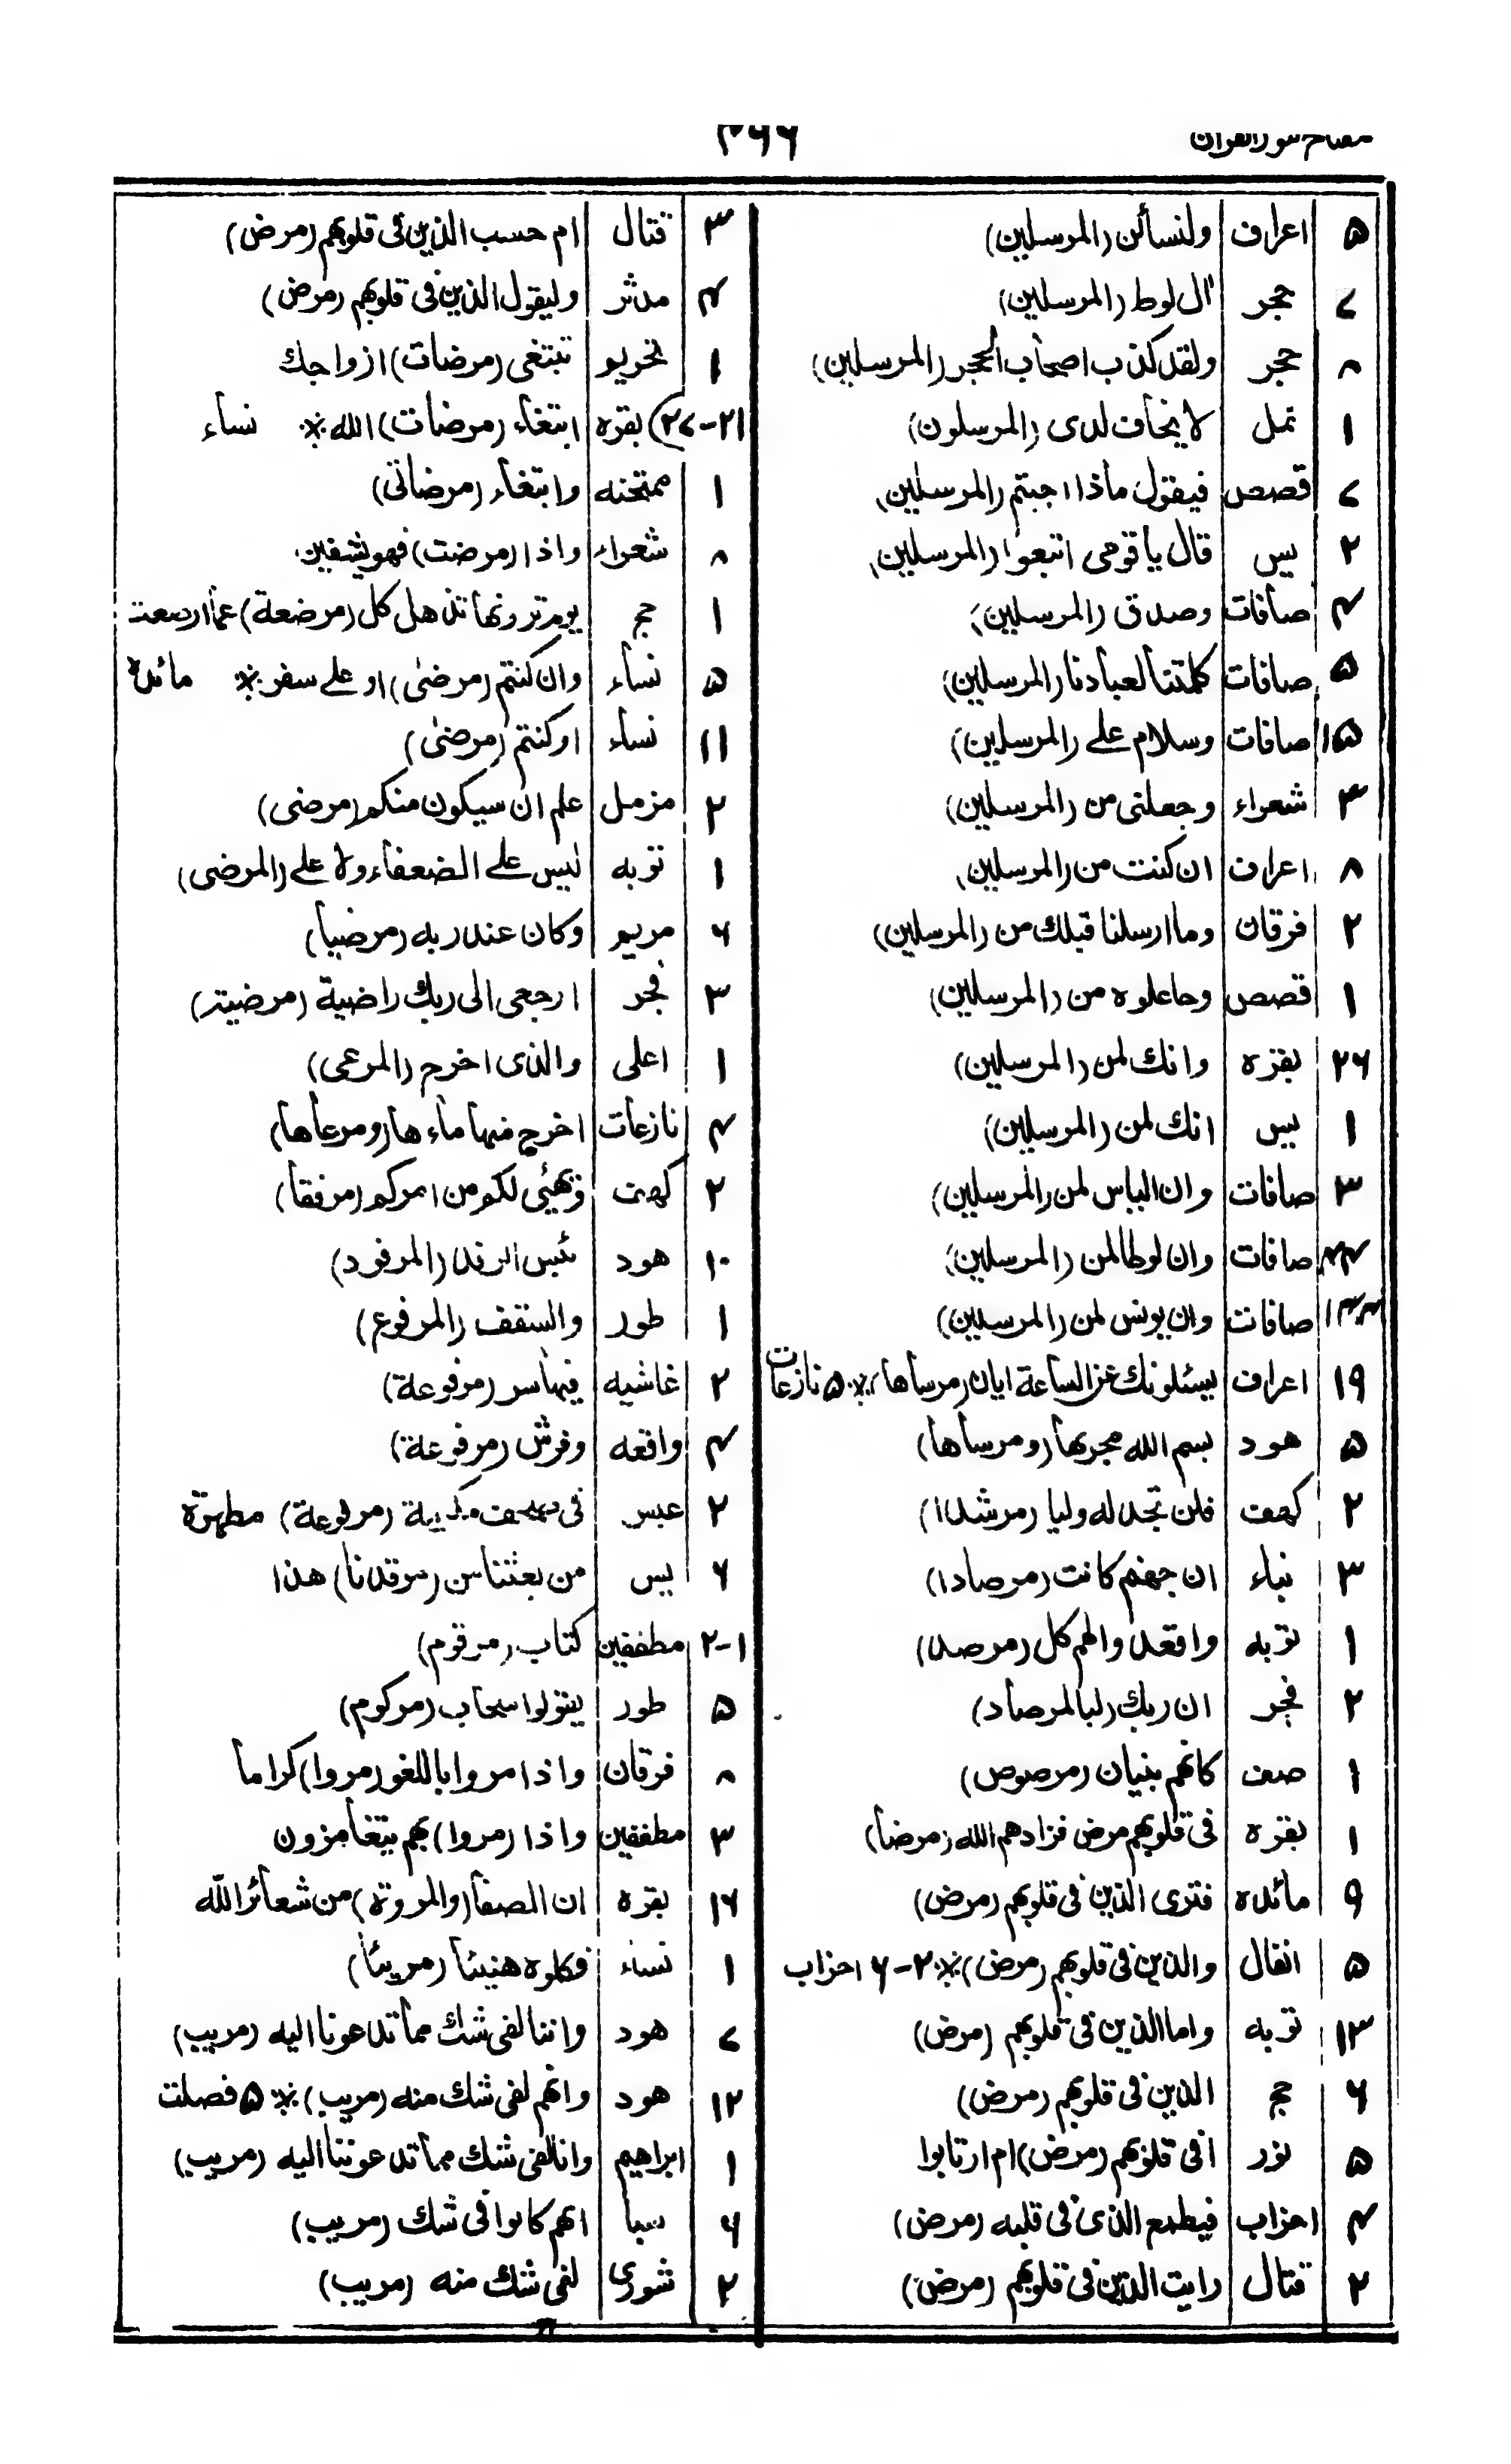 ۳۶۶
۵ اعراف ولنسألن (المرسلین)
۷ حجر ال لوط (المرسلین)
۸ حجر ولقد کذب اصحاب الحجر (المرسلین)
۱ نمل لا یخاف لدی (المرسلون)
۷ قصص فیقول ماذا اجبتم (المرسلین)
۲ یس قال یا قومی اتبعوا (المرسلین)
۴ صافات وصدق (المرسلین)
۵ صافات کلمتنا لعبادنا (المرسلین)
۱۵ صافات وسلام علی (المرسلین)
۳ شعراء وجعلنی من (المرسلین)
۸ اعراف ان کنت من (المرسلین)
۲ فرقان وما ارسلنا قبلک من (المرسلین)
۱ قصص وجاعلوه من (المرسلین)
۲۶ بقره وانک لمن (المرسلین)
۱ یس انک لمن (المرسلین)
۳ صافات وان الیاس لمن (المرسلین)
صافات وان لوطا لمن (المرسلین)
صافات وان یونس لمن (المرسلین)
۱۹ اعراف یسئلونک عن الساعة ایان (مرساها) * ۵ نازعات
۵ هود بسم الله مجریها (ومرساها)
۲ کهف فلن تجد له ولیا (مرشدا)
۳ نباء ان جهنم کانت (مرصادا)
۱ توبه واقعدوالهم کل (مرصد)
۲ فجر ان ربک (لبالمرصاد)
۱ صف کانهم بنیان (مرصوص)
۱ بقره فی قلوبهم مرض فزادهم الله (مرضا)
۹ مائده فتری الذین فی قلوبهم (مرض)
۵ انفال والذین فی قلوبهم (مرض) * ۲-۶ احزاب
۱۳ توبه واما الذین فی قلوبهم (مرض)
۶ حج الذین فی قلوبهم (مرض)
۵ نور افی قلوبهم (مرض) ام ارتابوا
۴ احزاب فیطمع الذی فی قلبه (مرض)
۲ قتال رایت الذین فی قلوبهم (مرض)
۳ قتال ام حسب الذین فی قلوبهم (مرض)
۴ مدثر ولیقول الذین فی قلوبهم (مرض)
۱ تحریم تبتغی (مرضات) ازواجک
۲۱-۲۷) بقره ابتغاء (مرضات) الله * نساء
۱ ممتحنه وابتغاء (مرضاتی)
۸ شعراء واذا (مرضت) فهو یشفین
۱ حج یوم ترونها تذهل کل (مرضعة) عما ارضعت
۵ نساء وان کنتم (مرضیٰ) او علی سفر * مائده
۱۱ نساء او کنتم (مرضیٰ)
۲ مزمل علم ان سیکون منکم (مرضی)
۱ توبه لیس علی الضعفاء ولا علی (المرضی)
۶ مریم وکان عند ربه (مرضیا)
۳ فجر ارجعی الی ربک راضیة (مرضیة)
۱ اعلی والذی اخرج (المرعی)
۴ نازعات اخرج منها ماءها (ومرعاها)
۲ کهف ویهیئ لکم من امرکم (مرفقا)
۱۰ هود بئس الرفد (المرفود)
۱ طور والسقف (المرفوع)
۲ غاشیه فیها سر (مرفوعة)
۴ واقعه وفرش (مرفوعة)
۲ عبس فی صحف مکرمة (مرفوعة) مطهرة
۶ یس من بعثنا من (مرقدنا) هذا
۱-۲ مطففین کتاب (مرقوم)
۵ طور یقولوا سحاب (مرکوم)
۸ فرقان واذا مروا باللغو (مروا) کراما
۳ مطففین واذا (مروا) بهم یتغامزون
۱۶ بقره ان الصفا (والمروة) من شعائر الله
۱ نساء فکلوه هنیئا (مریئا)
۷ هود واننا لفی شک مما تدعونا الیه (مریب)
۱۲ هود وانهم لفی شک منه (مریب) * ۵ فصلت
۱ ابراهیم وانا لفی شک مما تدعوننا الیه (مریب)
۶ سبا انهم کانوا فی شک (مریب)
۲ شوری لفی شک منه (مریب)